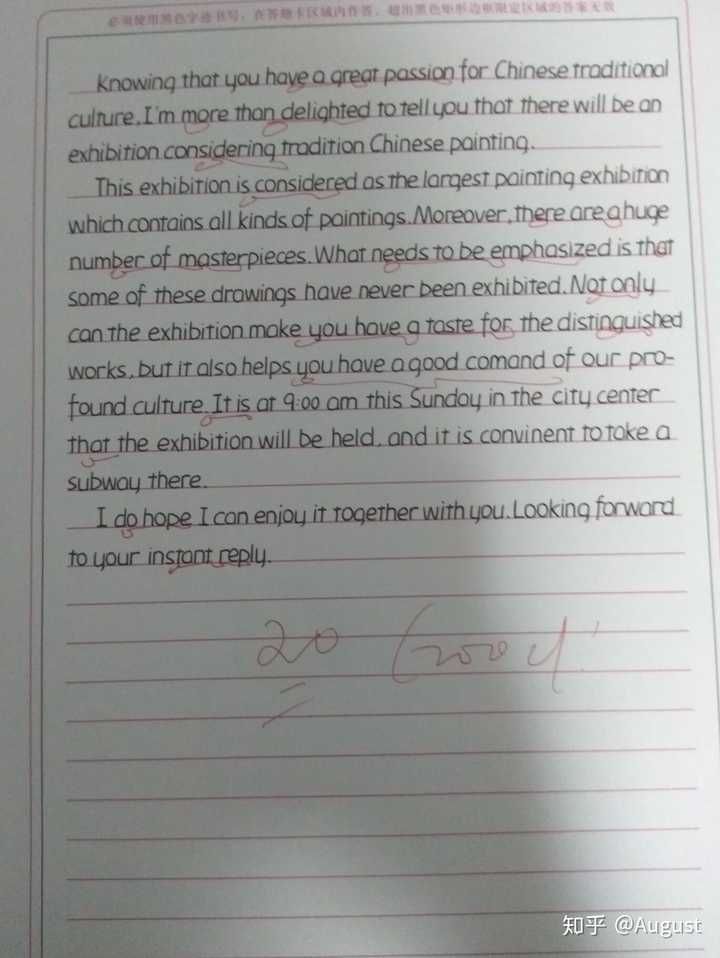 必须使用黑色字迹书写，在答题卡区域内作答，超出黑色矩形边框限定区域的答案无效
Knowing that you have a great passion for Chinese traditional
culture, I'm more than delighted to tell you that there will be an
exhibition considering tradition Chinese painting.
This exhibition is considered as the largest painting exhibition
which contains all kinds of paintings. Moreover, there are a huge
number of masterpieces. What needs to be emphasized is that
some of these drawings have never been exhibited. Not only
can the exhibition make you have a taste for the distinguished
works, but it also helps you have a good comand of our pro-
found culture. It is at 9:00 am this Sunday in the city center
that the exhibition will be held, and it is convinent to take a
subway there.
I do hope I can enjoy it together with you. Looking forward
to your instant reply.
20 Good!
知乎 @August